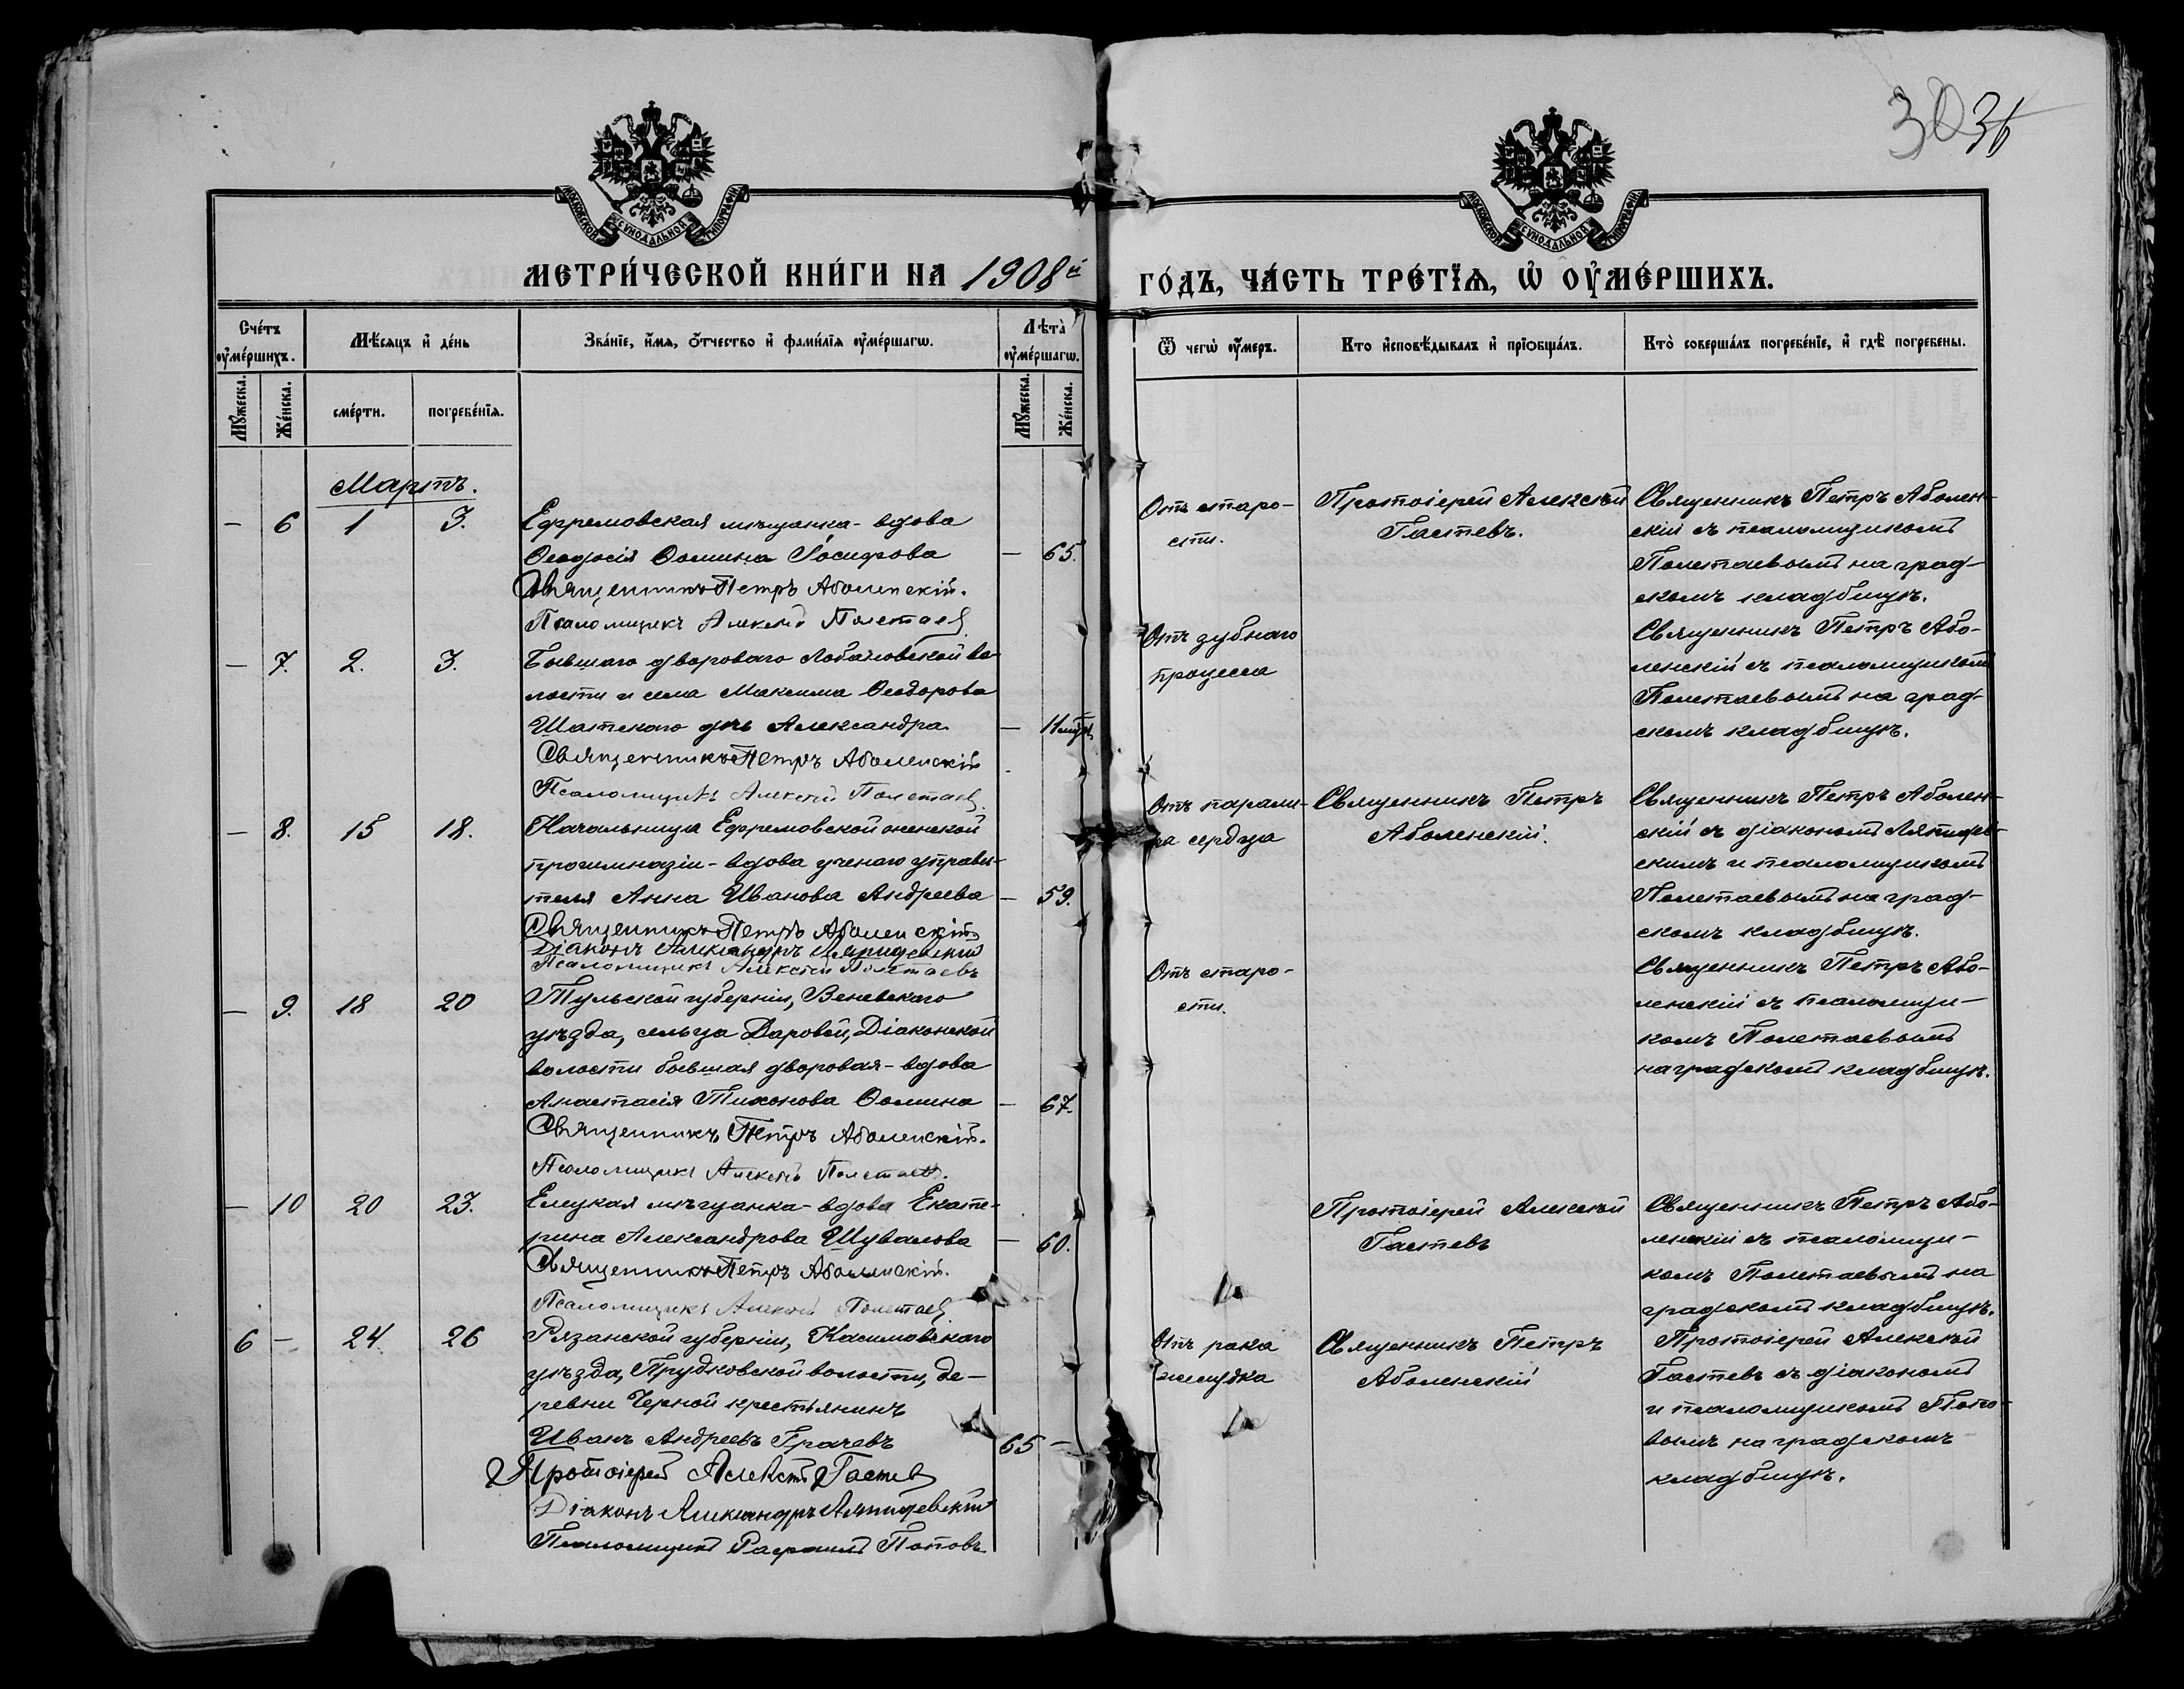 303б
МОСКОВСКОЙ СѴНОДАЛЬНОЙ ТИПОГРАФІИ
МОСКОВСКОЙ СѴНОДАЛЬНОЙ ТИПОГРАФІИ
МЕТРИ́ЧЕСКОЙ КНИ́ГИ НА 1908й
ГО́ДЪ, ЧА́СТЬ ТРЕ́ТЇѦ, Ѡ҆ ОУ҆МЕ́РШИХЪ.
Сче́тъ оу҆ме́ршихъ.
Мѣ́сѧцъ и҆ де́нь
Зва́нїе, и҆́мѧ, ѻ҆́тчество и҆ фами́лїѧ оу҆ме́ршагѡ.
Лѣта̀ оу҆ме́ршагѡ.
Ѿ чегѡ̀ оу҆́меръ.
Кто и҆сповѣ́дывалъ и҆ прїѡбща́лъ.
Кто̀ соверша́лъ погребе́нїе, и҆ гдѣ̀ погребены.
Мꙋ́жеска.
Же́нска.
сме́рти.
погребе́нїѧ.
Мꙋ́жеска.
Же́нска.
Мартъ.
— 6 1 3. Ефремовская мѣщанка - вдова
Ѳеодосія Ѳомина Іосифова — 65.
Священникъ Петръ Аболенскій.
Псаломщикъ Алексѣй Полетаев
Отъ старо-
сти.
Протоіерей Алексѣй
Гастевъ.
Священникъ Петръ Аболен-
скій съ псаломщикомъ
Полетаевымъ на град-
скомъ кладбищѣ.
— 7. 2. 3. Бывшаго двороваго Лобановской во-
лости и села Максима Ѳеодорова
Шатскаго дчь Александра — 11 мѣс.
Священникъ Петръ Аболенскій
Псаломщикъ Алексѣй Полетаев.
Отъ зубнаго
процесса
Священникъ Петръ Або-
ленскій съ псаломщикомъ
Полетаевымъ на град-
скомъ кладбищѣ.
— 8. 15 18. Начальница Ефремовской женской
прогимназіи - вдова ученаго управи-
теля Анна Иванова Андреева — 59.
Священникъ Петръ Аболенскій
Діаконъ Александръ Ляпидевскій
Псаломщикъ Алексѣй Полетаевъ
Отъ парали-
ча сердца
Священникъ Петръ
Аболенскій.
Священникъ Петръ Аболен-
скій съ діакономъ Ляпидев-
скимъ и псаломщикомъ
Полетаевымъ на град-
скомъ кладбищѣ.
— 9. 18 20 Тульской губерніи, Веневскаго
уѣзда, сельца Даровой, Діаконской
волости бывшая дворовая - вдова
Анастасія Тихонова Ѳомина — 67.
Священникъ Петръ Аболенскій.
Псаломщикъ Алексѣй Полетаев.
Отъ старо-
сти.
Священникъ Петръ Або-
ленскій съ псаломщи-
комъ Полетаевымъ
на градскомъ кладбищѣ.
— 10 20 23. Елецкая мѣщанка - вдова Екате-
рина Александрова Шувалова — 60.
Священникъ Петръ Аболенскій.
Псаломщикъ Алексѣй Полетаев
Протоіерей Алексѣй
Гастевъ
Священникъ Петръ Або-
ленскій съ псаломщи-
комъ Полетаевымъ на
градскомъ кладбищѣ.
6 — 24. 26 Рязанской губерніи, Касимовскаго
уѣзда, Прудковской волости, де-
ревни Черной крестьянинъ
Иванъ Андреевъ Грачевъ 65 —
Протоіерей Алексѣй Гастев
Діаконъ Александръ Ляпидевскій
Псаломщикъ Рафаилъ Поповъ
Отъ рака
желудка
Священникъ Петръ
Аболенскій
Протоіерей Алексѣй
Гастевъ съ діакономъ
и псаломщикомъ Попо-
вымъ на градскомъ
кладбищѣ.